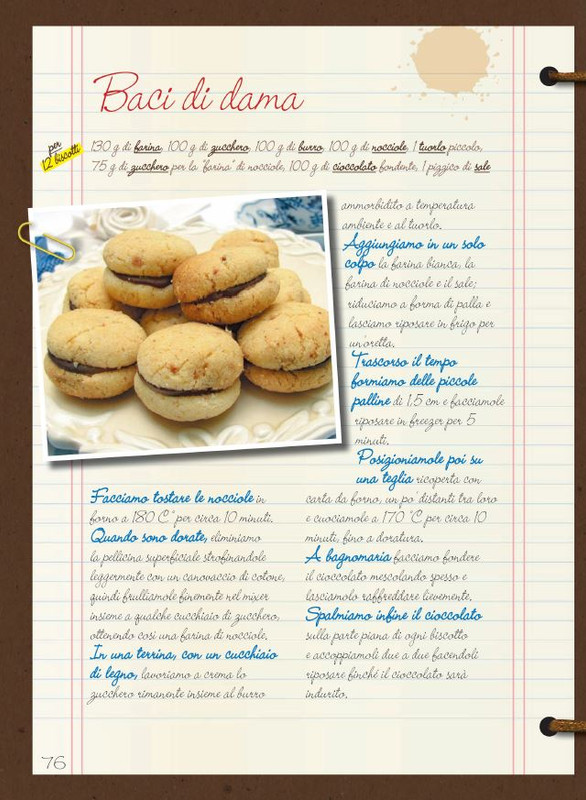 Baci di dama
per
12 biscotti
130 g di farina, 100 g di zucchero, 100 g di burro, 100 g di nocciole, 1 tuorlo piccolo,
75 g di zucchero per la "farina" di nocciole, 100 g di cioccolato fondente, 1 pizzico di sale
Facciamo tostare le nocciole in
forno a 180 C° per circa 10 minuti.
Quando sono dorate, eliminiamo
la pellicina superficiale strofinandole
leggermente con un canovaccio di cotone,
quindi frulliamole finemente nel mixer
insieme a qualche cucchiaio di zucchero,
ottenendo così una farina di nocciole.
In una terrina, con un cucchiaio
di legno, lavoriamo a crema lo
zucchero rimanente insieme al burro
ammorbidito a temperatura
ambiente e al tuorlo.
Aggiungiamo in un solo
colpo la farina bianca, la
farina di nocciole e il sale;
riduciamo a forma di palla e
lasciamo riposare in frigo per
un'oretta.
Trascorso il tempo
formiamo delle piccole
palline di 1,5 cm e facciamole
riposare in freezer per 5
minuti.
Posizioniamole poi su
una teglia ricoperta con
carta da forno, un po' distanti tra loro
e cuociamole a 170 °C per circa 10
minuti, fino a doratura.
A bagnomaria facciamo fondere
il cioccolato mescolando spesso e
lasciamolo raffreddare lievemente.
Spalmiamo infine il cioccolato
sulla parte piana di ogni biscotto
e accoppiamoli due a due facendoli
riposare finché il cioccolato sarà
indurito.
76